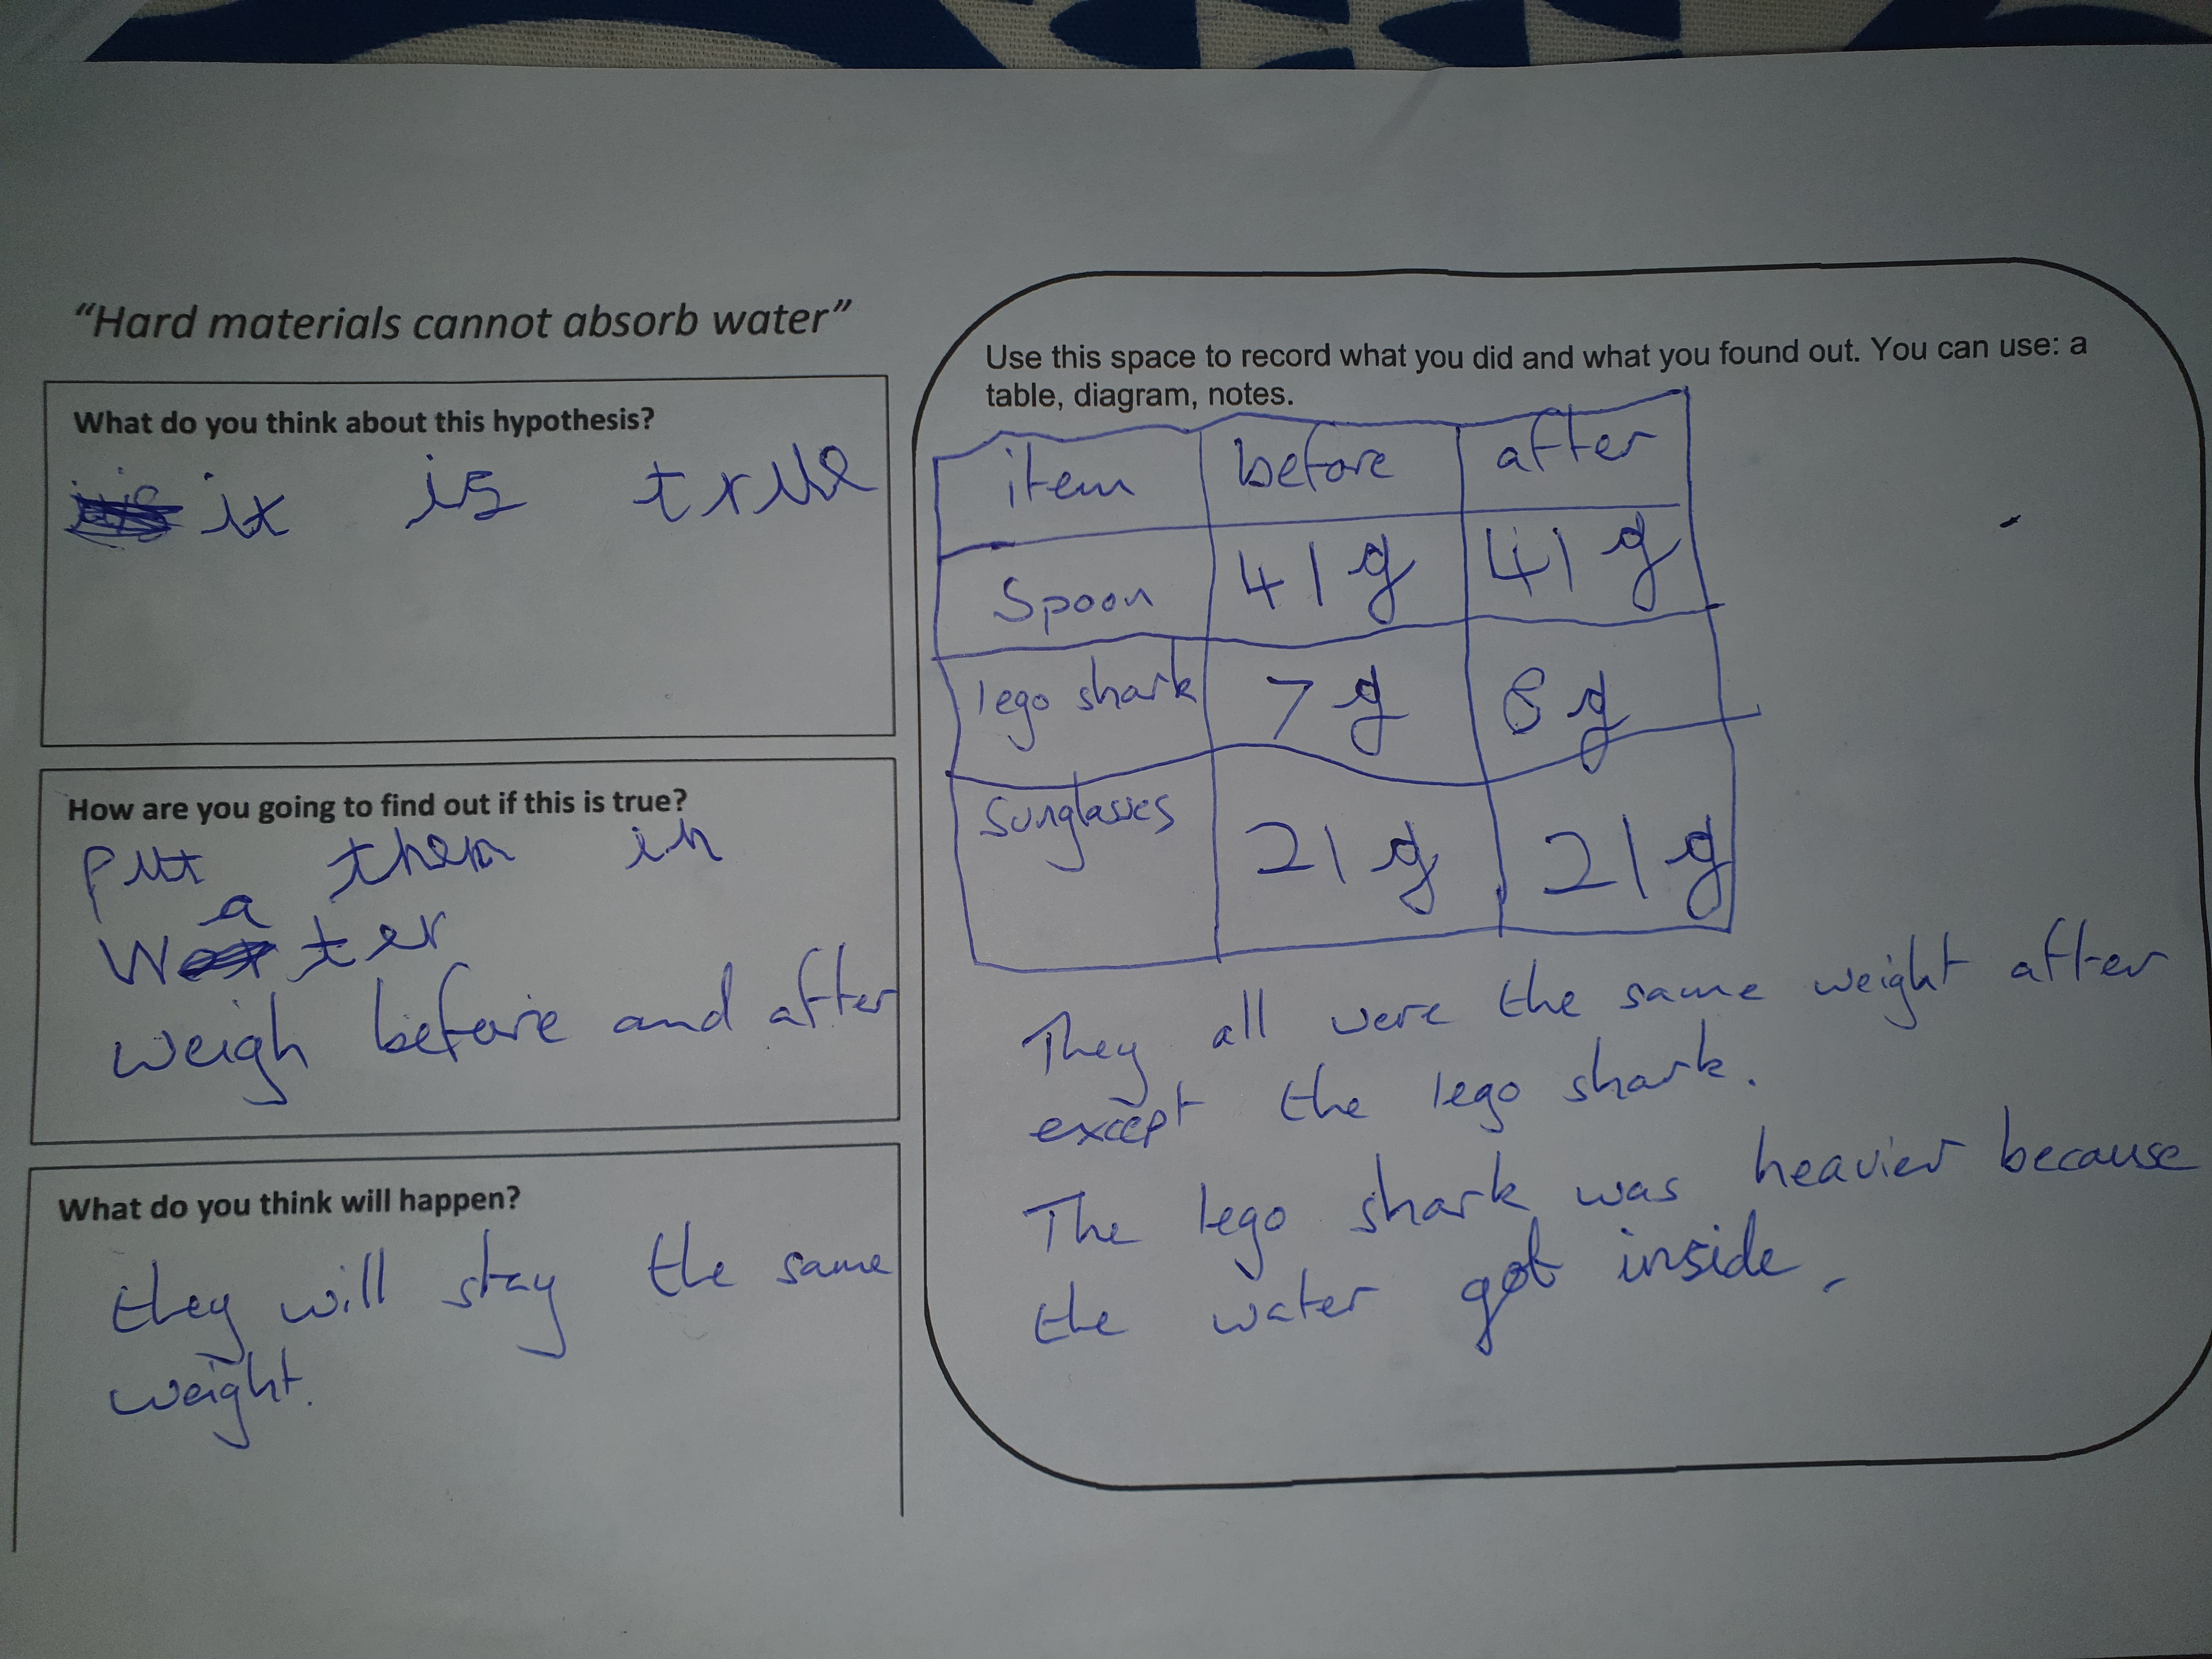 "Hard materials cannot absorb water"
What do you think about this hypothesis?
it is true
How are you going to find out if this is true?
Put them in
water
weigh before and after
What do you think will happen?
they will stay the same
weight.
Use this space to record what you did and what you found out. You can use: a
table, diagram, notes.
item before after
Spoon 41g 41g
lego shark 7g 8g
Sunglasses 21g 21g
They all were the same weight after
except the lego shark.
The lego shark was heavier because
the water got inside.